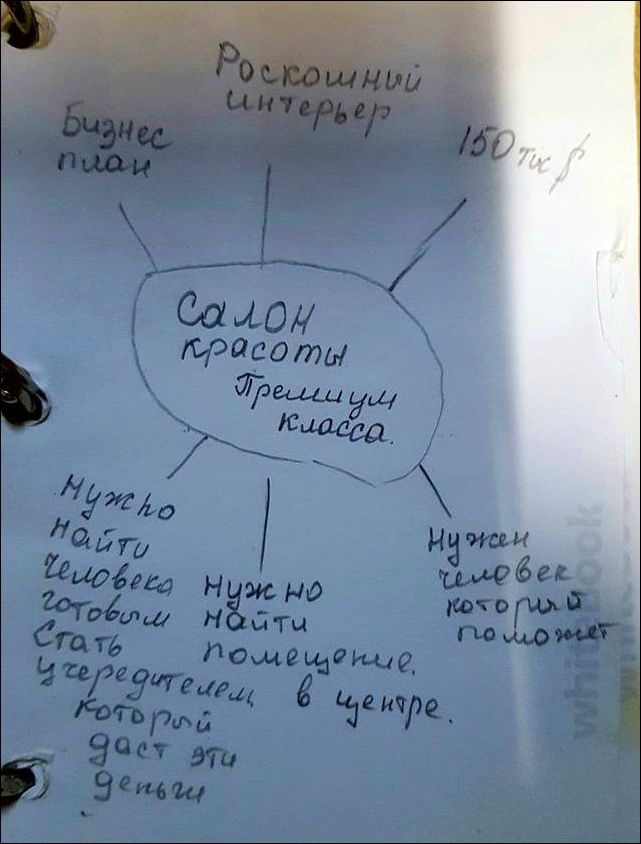 Роскошный
интерьер
Бизнес
план
150 тис $
Салон
красоты
Премиум
класса.
Нужно
найти
человека
готовым
стать
учередителем
который
даст эти
деньги
нужно
найти
помещение.
в центре.
Нужен
человек
который
поможет
whitebook